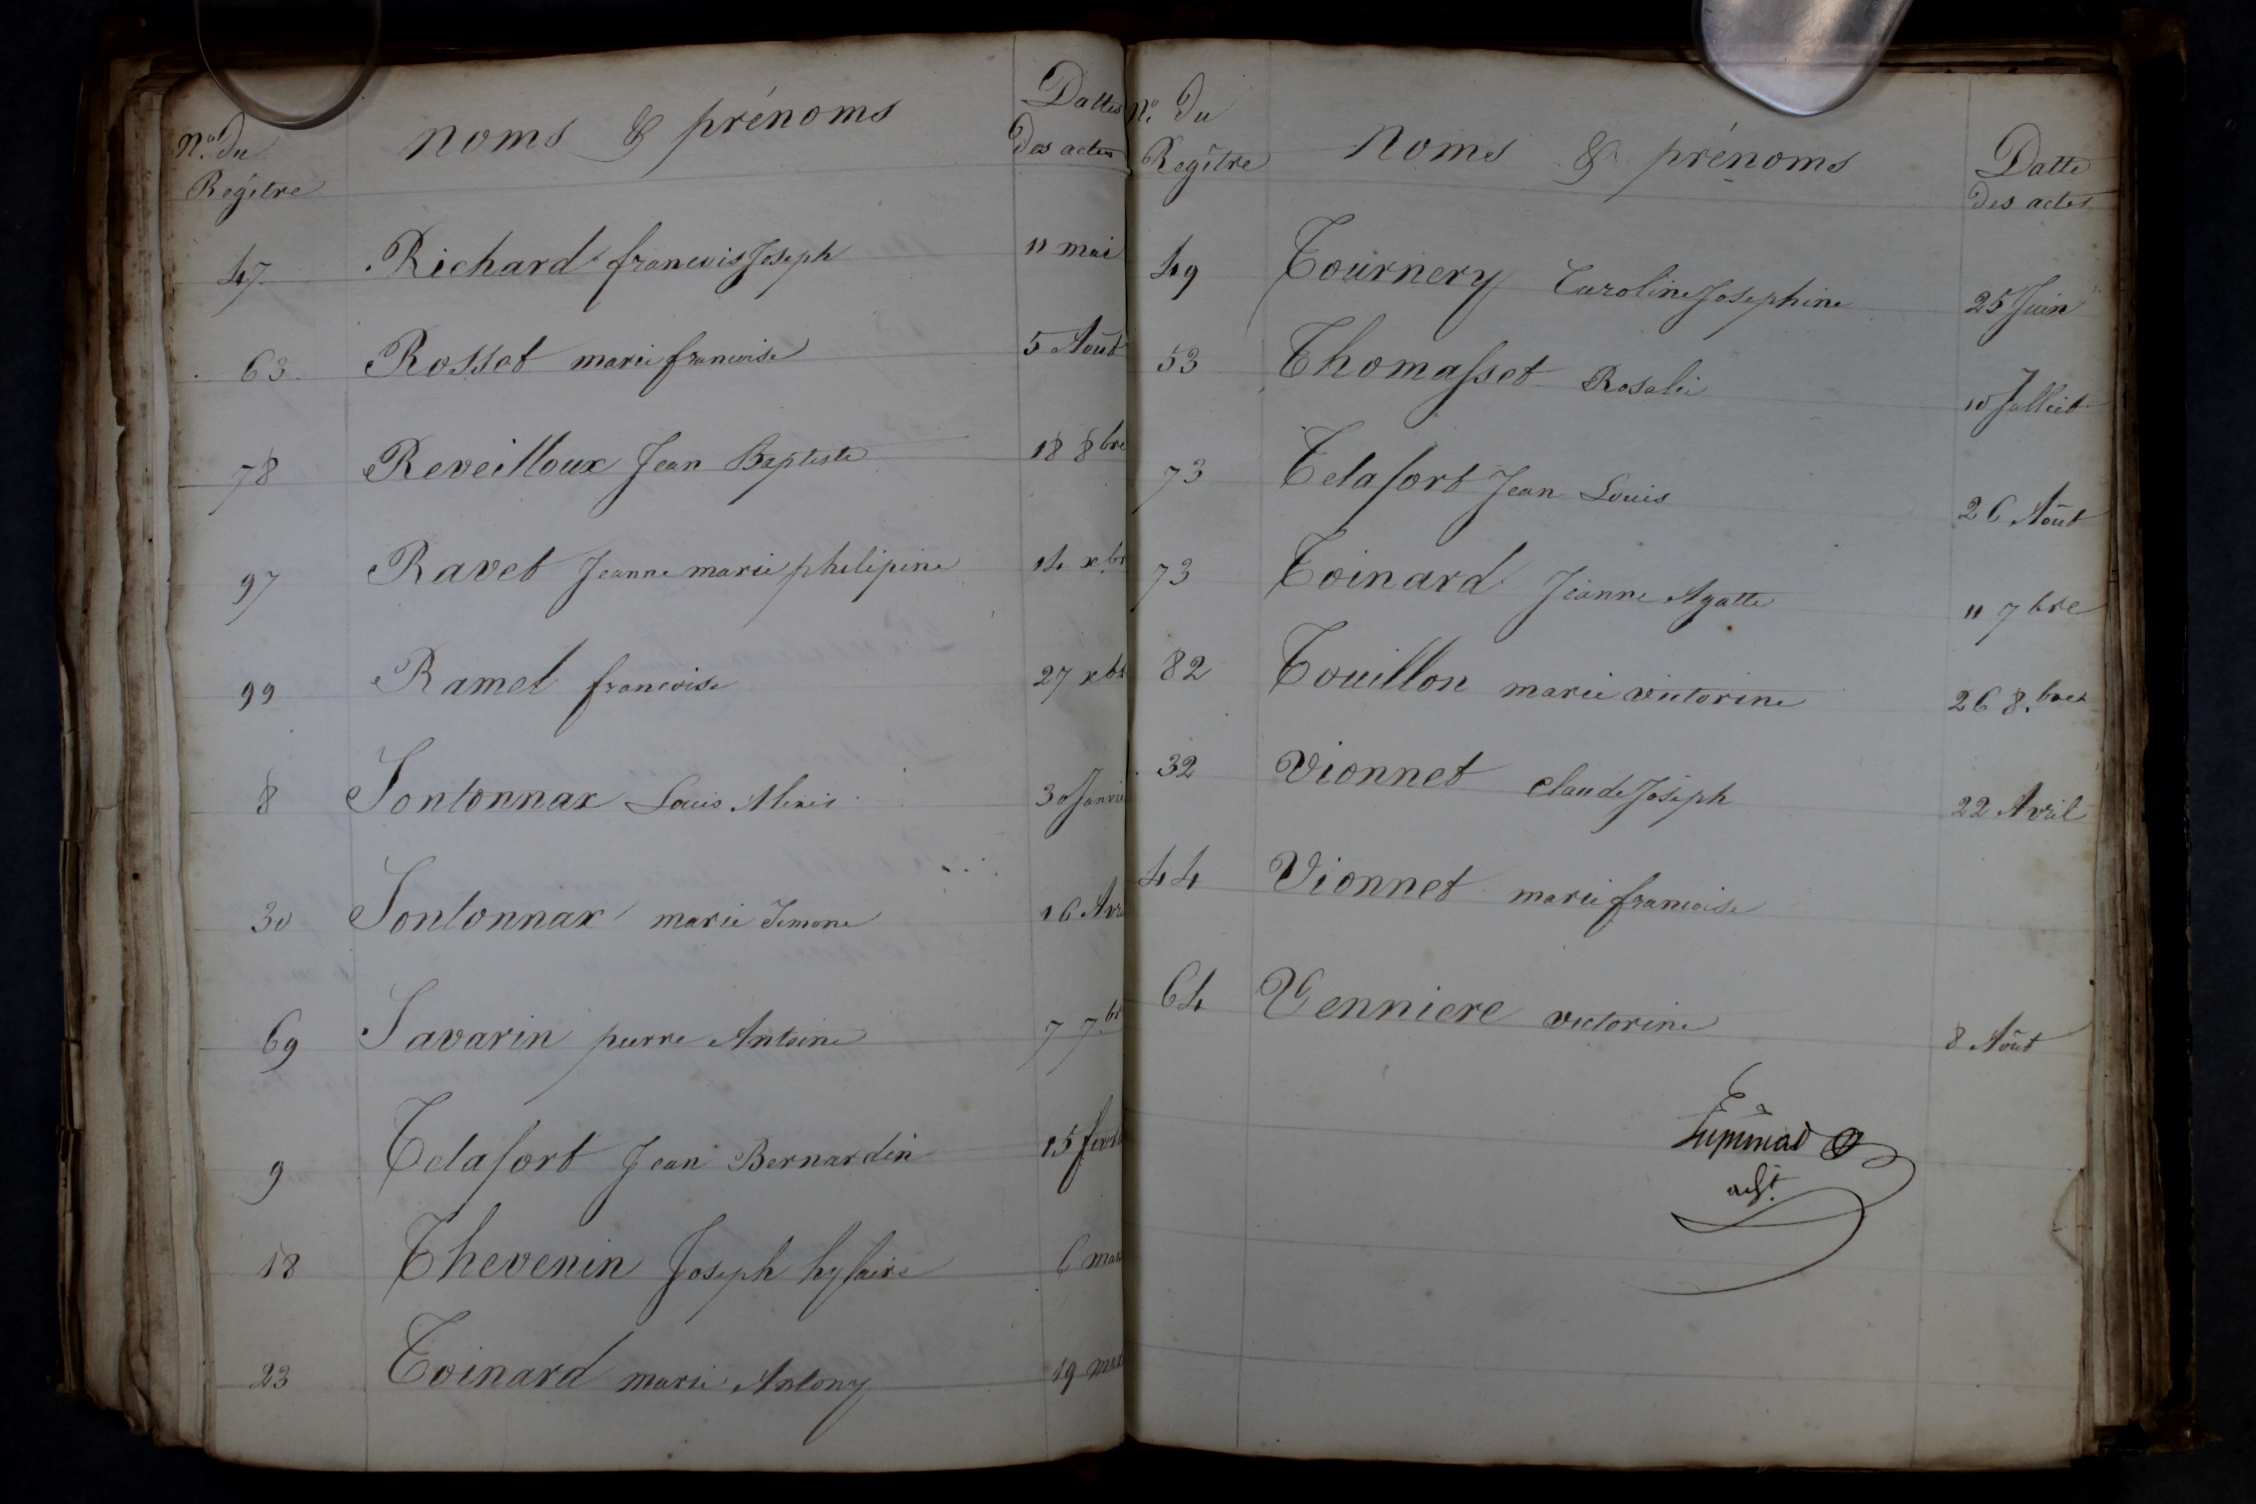 N.o du
Regitre
noms & prénoms
Dattes
des actes
47 Richard francois Joseph 11 mai
63 Rosset marie francoise 5 Août
78 Reveilloux Jean Baptiste 18 8bre
97 Ravet Jeanne marie philipine 14 xbr
99 Ramel francoise 27 xbr
8 Sontonnax Louis Alexis 30 Janvie
30 Sontonnax marie Simone 16 Avr
69 Savarin pierre Antoine 7 7.br
9 Telafort Jean Bernardin 15 fevr
18 Thevenin Joseph hylaire 6 mar
23 Toinard marie Antony 19 mar
N.o du
Regitre
Noms & prénoms
Datte
des actes
49 Tournery Caroline Josephine 25 Juin
53 Thomasset Rosalie 10 Julliet
73 Telafort Jean Louis 26 Août
73 Toinard Jeanne Agatte 11 7bre
82 Touillon marie victorine 26 8.bres
32 Vionnet claude Joseph 22 Avril
44 Vionnet marie francoise
64 Venniere victorine 8 Août
adjt